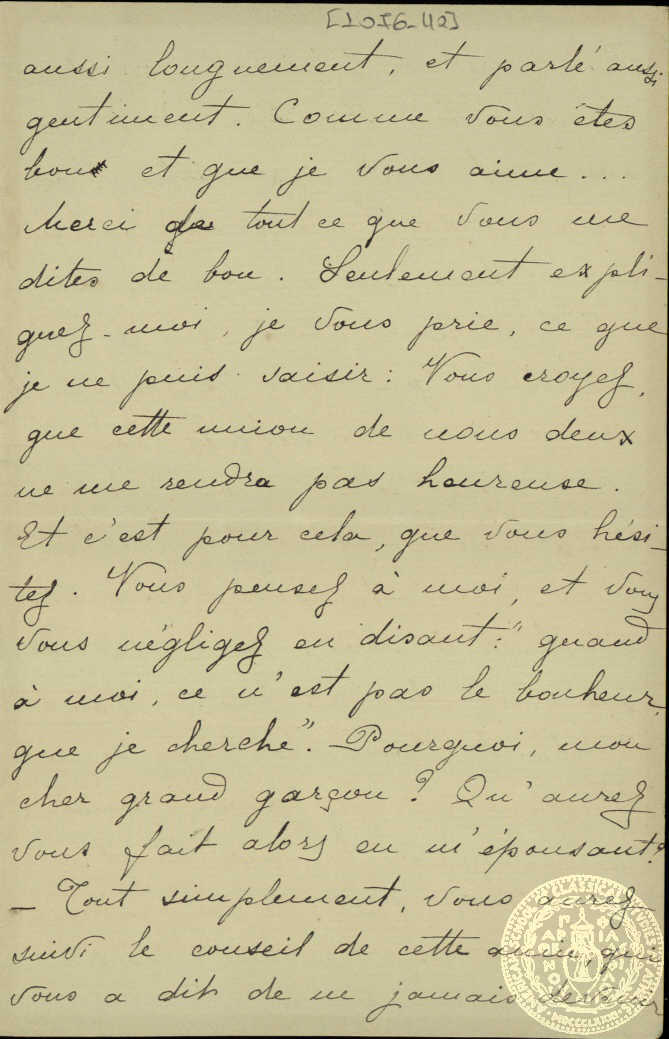 [1056-42]
aussi longuement, et parlé aussi
gentiment. Comme vous êtes
bon et que je vous aime...
Merci de tout ce que vous me
dites de bon. Seulement expli-
quez-moi, je vous prie, ce que
je ne puis saisir: Vous croyez,
que cette union de nous deux
ne me rendra pas heureuse.
Et c'est pour cela, que vous hési-
tez. Vous pensez à moi, et vous
vous négligez en disant: "quand
à moi, ce n'est pas le bonheur,
que je cherche". Pourquoi, mon
cher grand garçon? Qu'aurez
vous fait alors en m'épousant?
– Tout simplement, vous aurez
suivi le conseil de cette amie, qui
vous a dit de ne jamais devenir